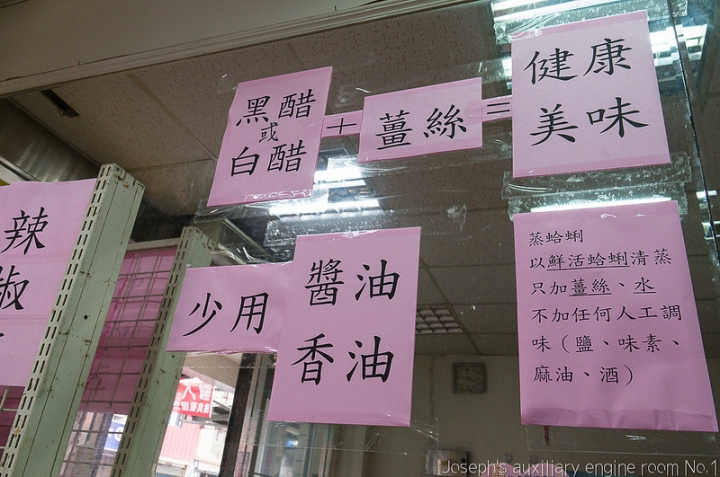 黑醋
或
白醋
+
薑絲
=
健康
美味
辣
椒
少用
醬油
香油
蒸蛤蜊
以鮮活蛤蜊清蒸
只加薑絲、水
不加任何人工調
味(鹽、味素、
麻油、酒)
Joseph's auxiliary engine room No.1